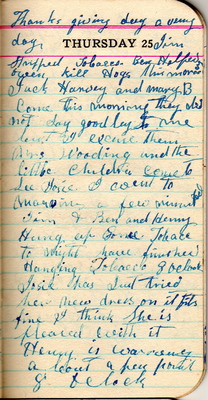 Thanks giving day a very
day.
THURSDAY 25
Jim
Stripped Tobacco Ben Helped
Green Kill Hogs this morn
Jack Harvey and mary B
Come this morning they did
not day goodby to me
but I excuse them
Mrs Wooding and the
little Children come to
see Josie I went to
a few minut
Jim & Ben and Henry
Hung up Some Tobacco
to night have finished
Hanging Tobacco 8 oclock
Josie has Just tried
her new dress on it fits
fine I think She is
pleased with it
Henry is
about a pen point
8 oclock